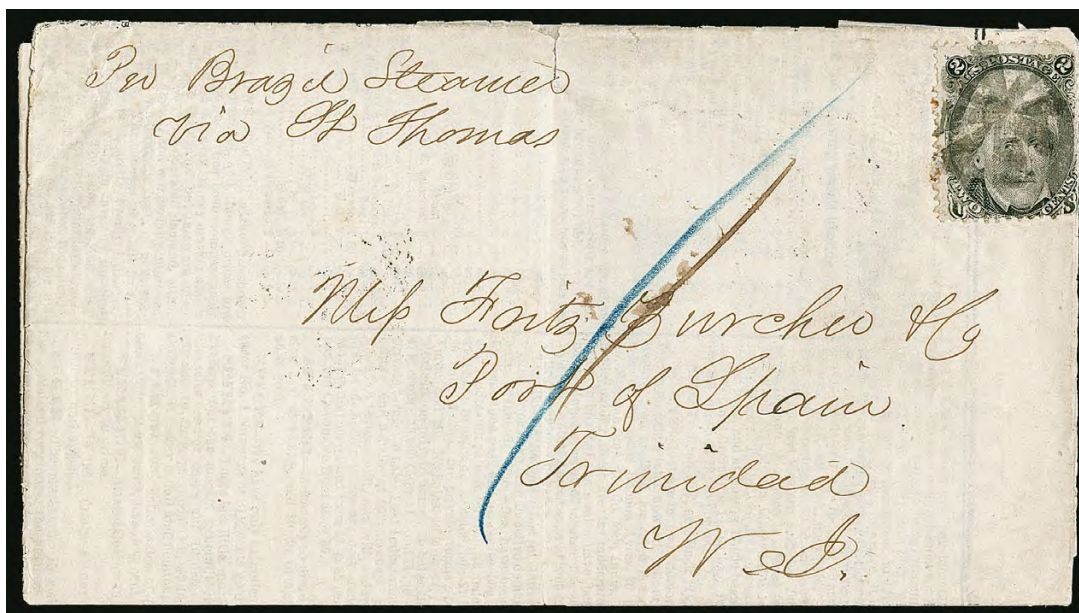 Per Brazil Steamer
via St Thomas
2 U.S. POSTAGE 2
TWO CENTS
Mess Fritz Zurcher & Co
Port of Spain
Trinidad
W. I.